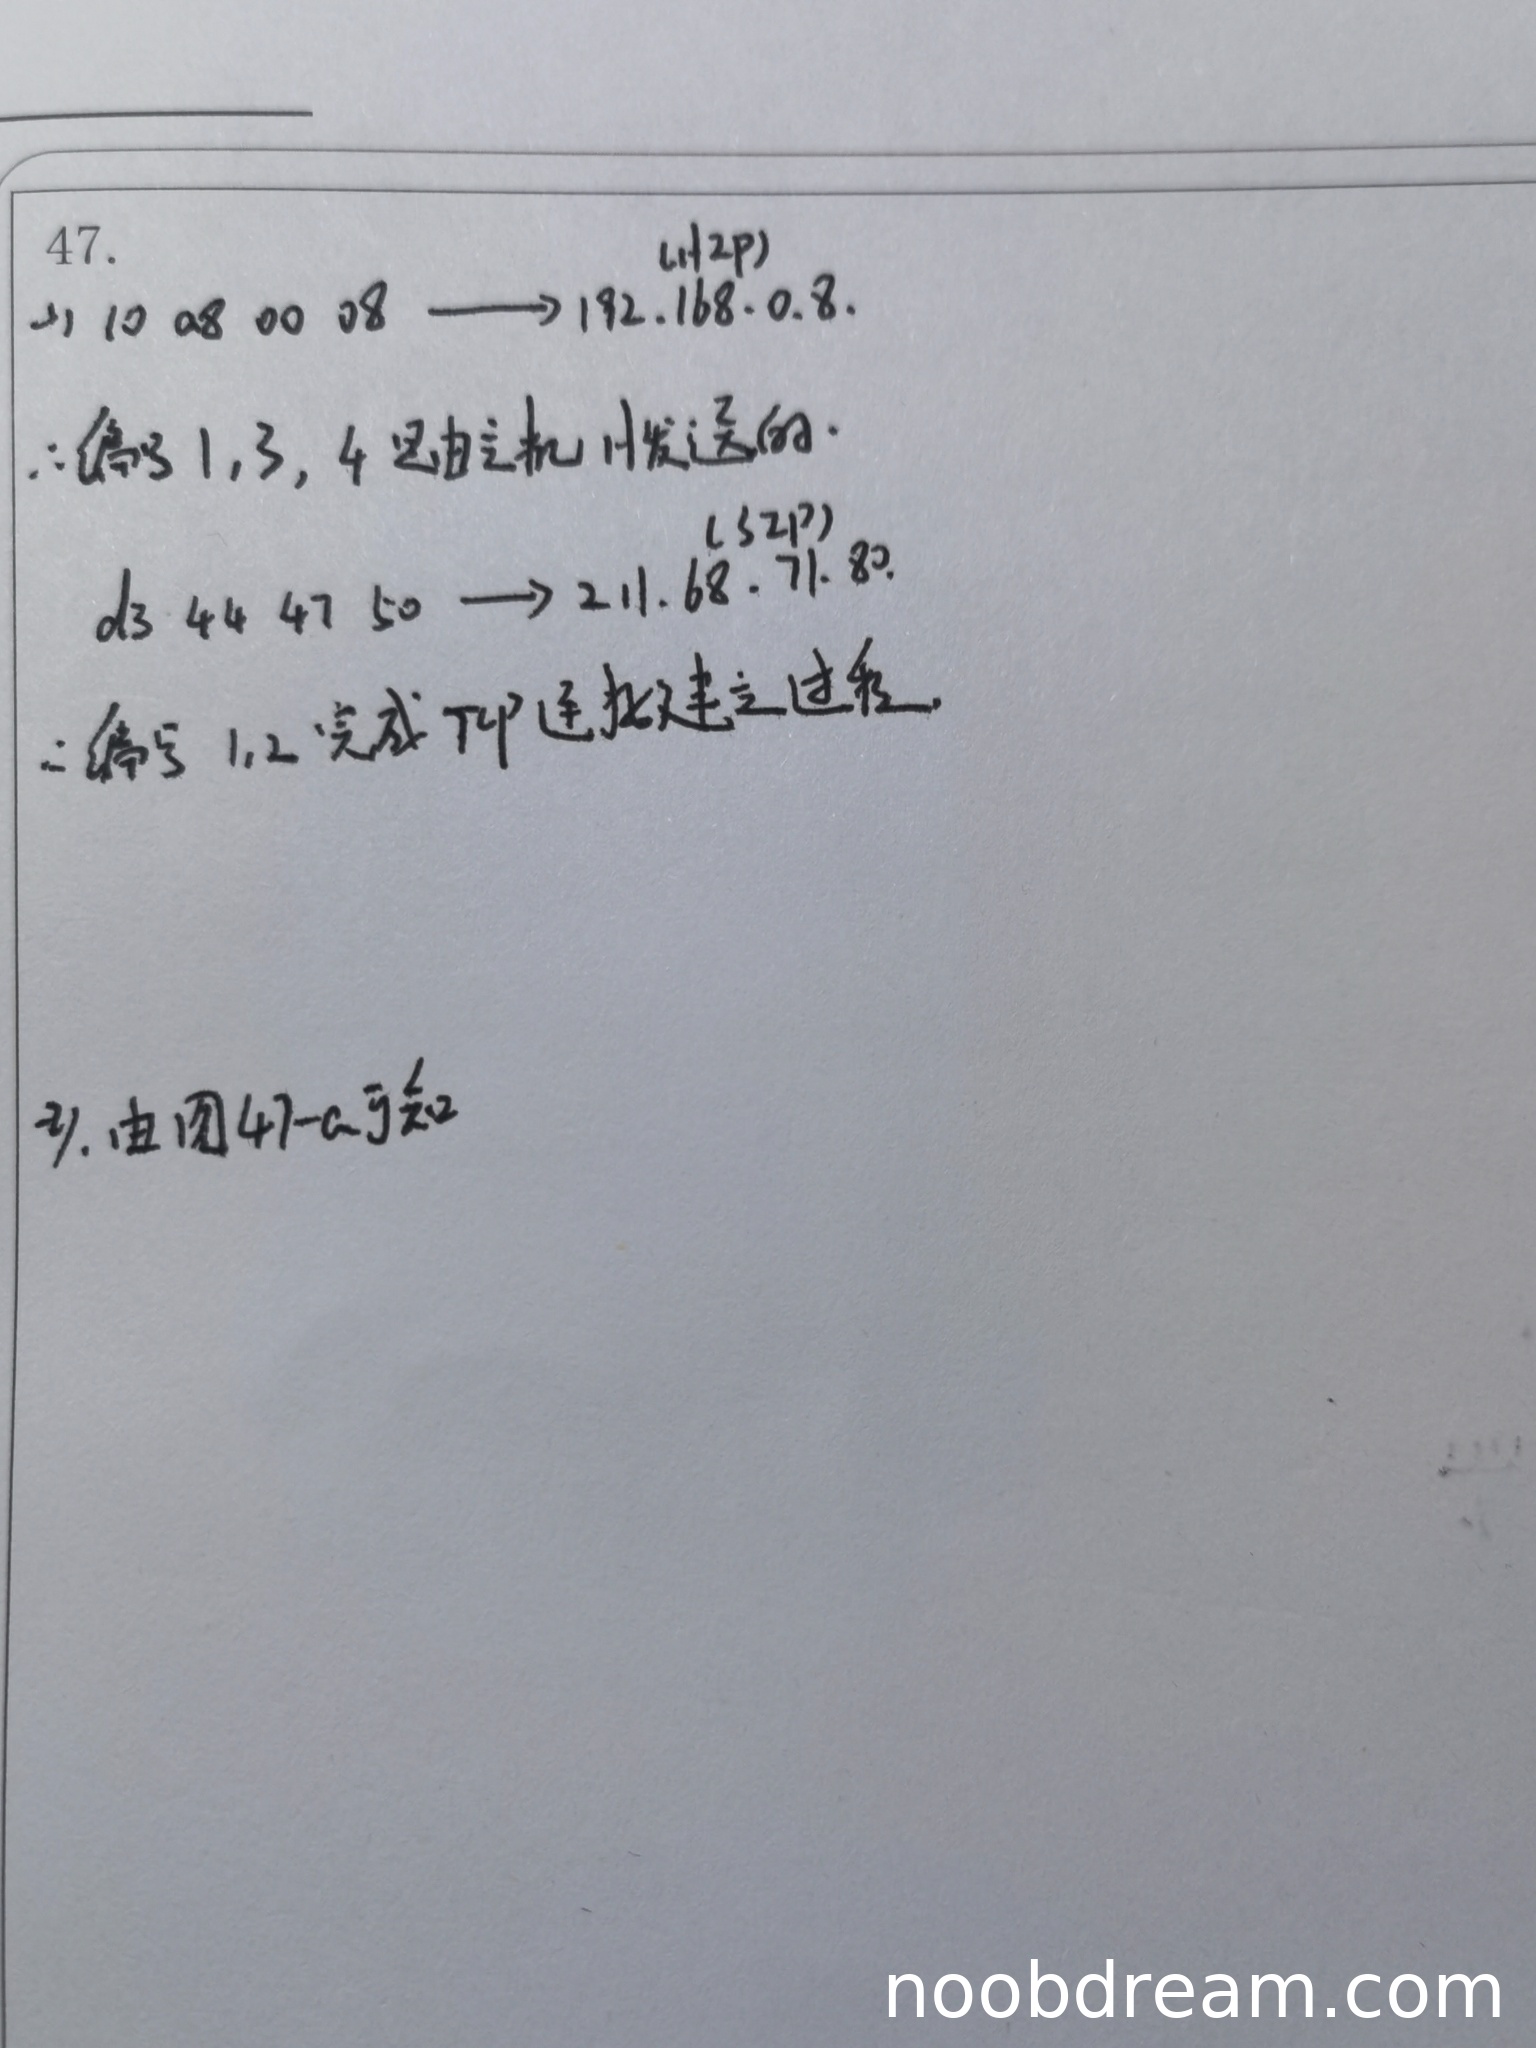 47.
(H IP)
(1) 10 08 00 08 → 192.168.0.8.
∴编号 1,3,4 是由主机 H发送的.
(S IP)
d3 44 47 50 → 211.68.71.80.
∴编号 1,2 完成 TCP 连接建立过程.
2). 由图47-a可知
noobdream.com